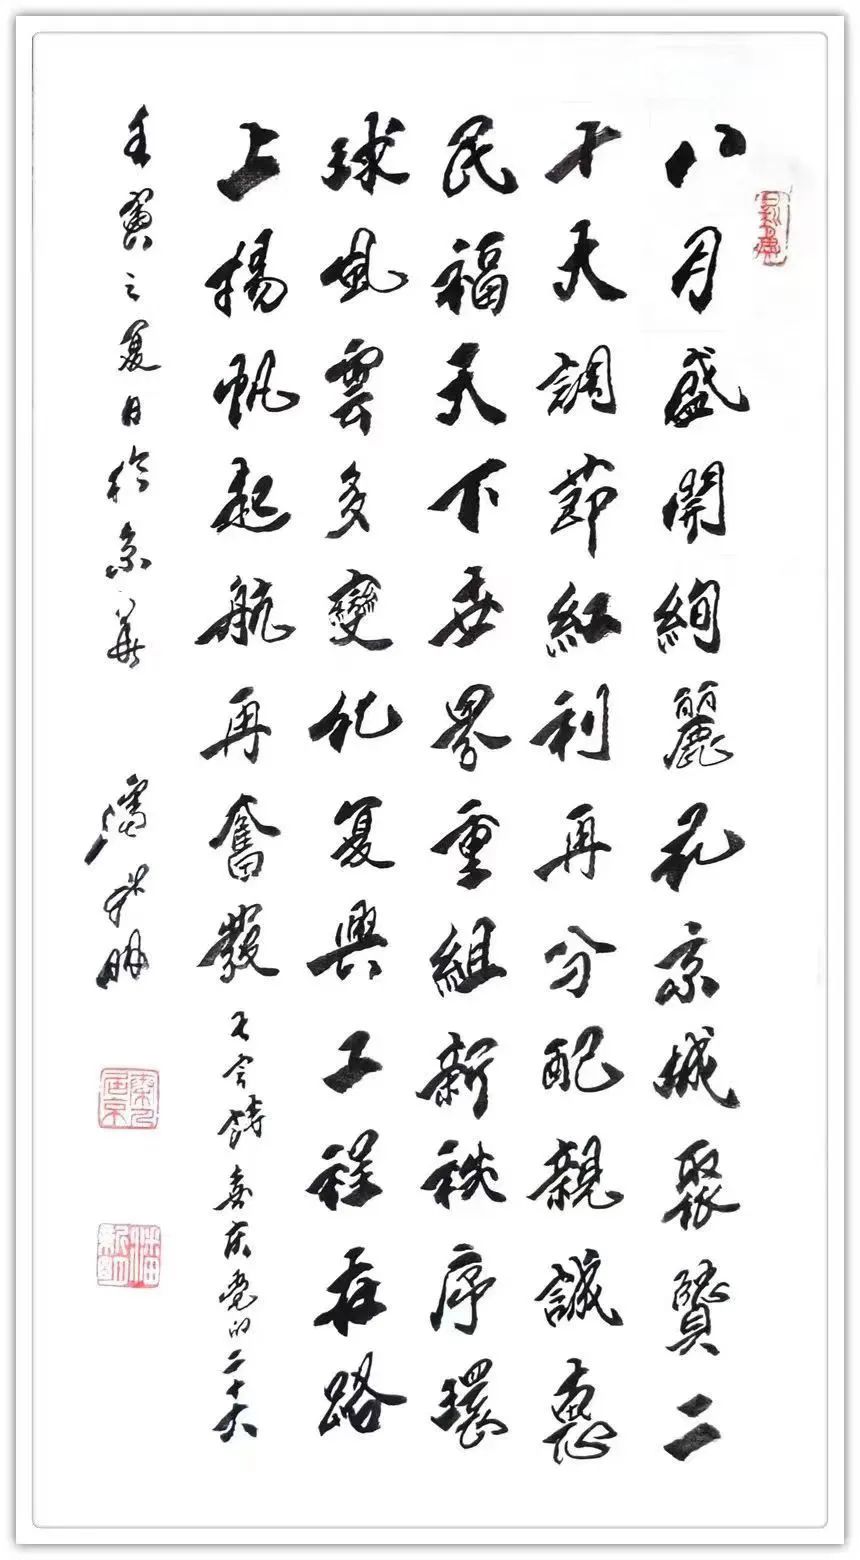 八月盛開絢麗花京城聚賢二
十大調節紅利再分配親誠惠
民福天下世界重組新秩序環
球風雲多變化复興工程在路
上揚帆起航再奮發 七言詩喜庆党的二十大
壬寅之夏日於京華 潘新明
秦人居京
潘新明